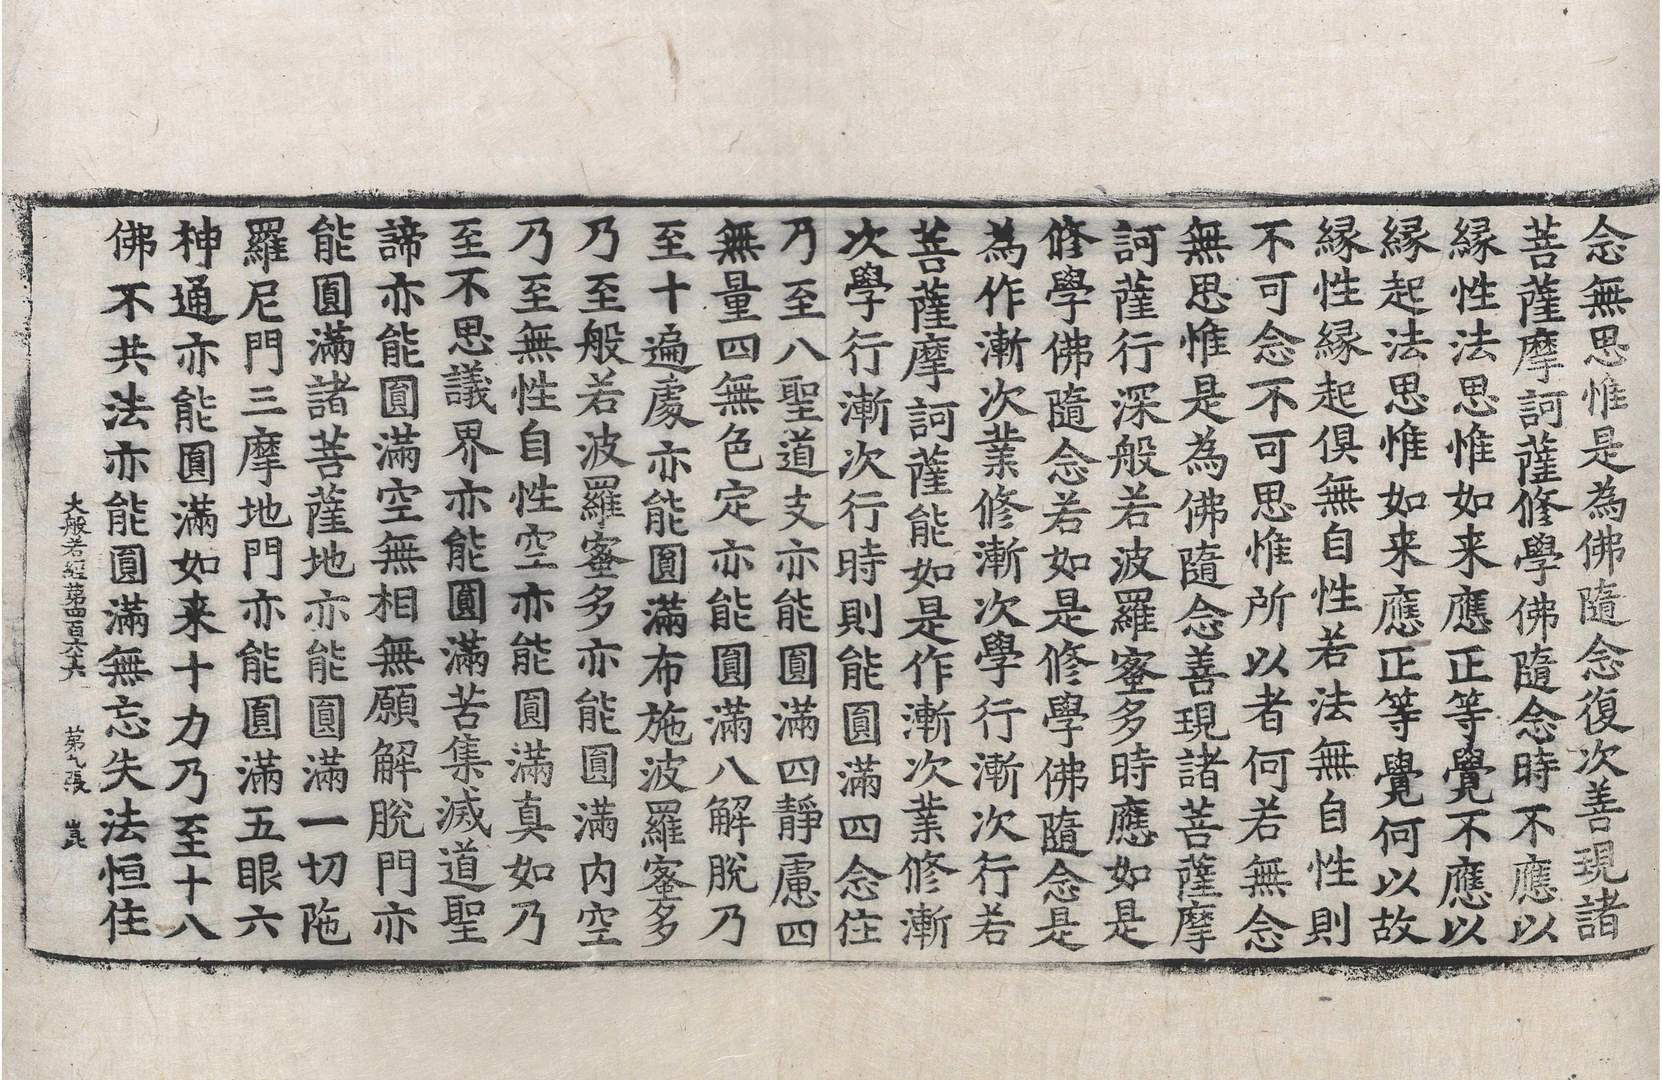 念無思惟是為佛隨念復次善現諸
菩薩摩訶薩修學佛隨念時不應以
緣性法思惟如来應正等覺不應以
緣起法思惟如来應正等覺何以故
緣性緣起俱無自性若法無自性則
不可念不可思惟所以者何若無念
無思惟是為佛隨念善現諸菩薩摩
訶薩行深般若波羅蜜多時應如是
修學佛隨念若如是修學佛隨念是
為作漸次業修漸次學行漸次行若
菩薩摩訶薩能如是作漸次業修漸
次學行漸次行時則能圓滿四念住
乃至八聖道支亦能圓滿四靜慮四
無量四無色定亦能圓滿八解脫乃
至十遍處亦能圓滿布施波羅蜜多
乃至般若波羅蜜多亦能圓滿內空
乃至無性自性空亦能圓滿真如乃
至不思議界亦能圓滿苦集滅道聖
諦亦能圓滿空無相無願解脫門亦
能圓滿諸菩薩地亦能圓滿一切陁
羅尼門三摩地門亦能圓滿五眼六
神通亦能圓滿如来十力乃至十八
佛不共法亦能圓滿無忘失法恒住
大般若經第四百六十六 第九張 崑